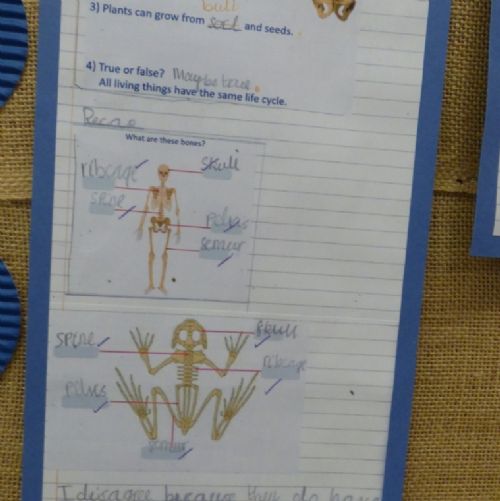 bulb
3) Plants can grow from seed and seeds.
4) True or false? Maybe true.
All living things have the same life cycle.
Recap
What are these bones?
ribcage skull
spine
pelvis
femur
spine skull
ribcage
pelves
femur
I disagree because they do have